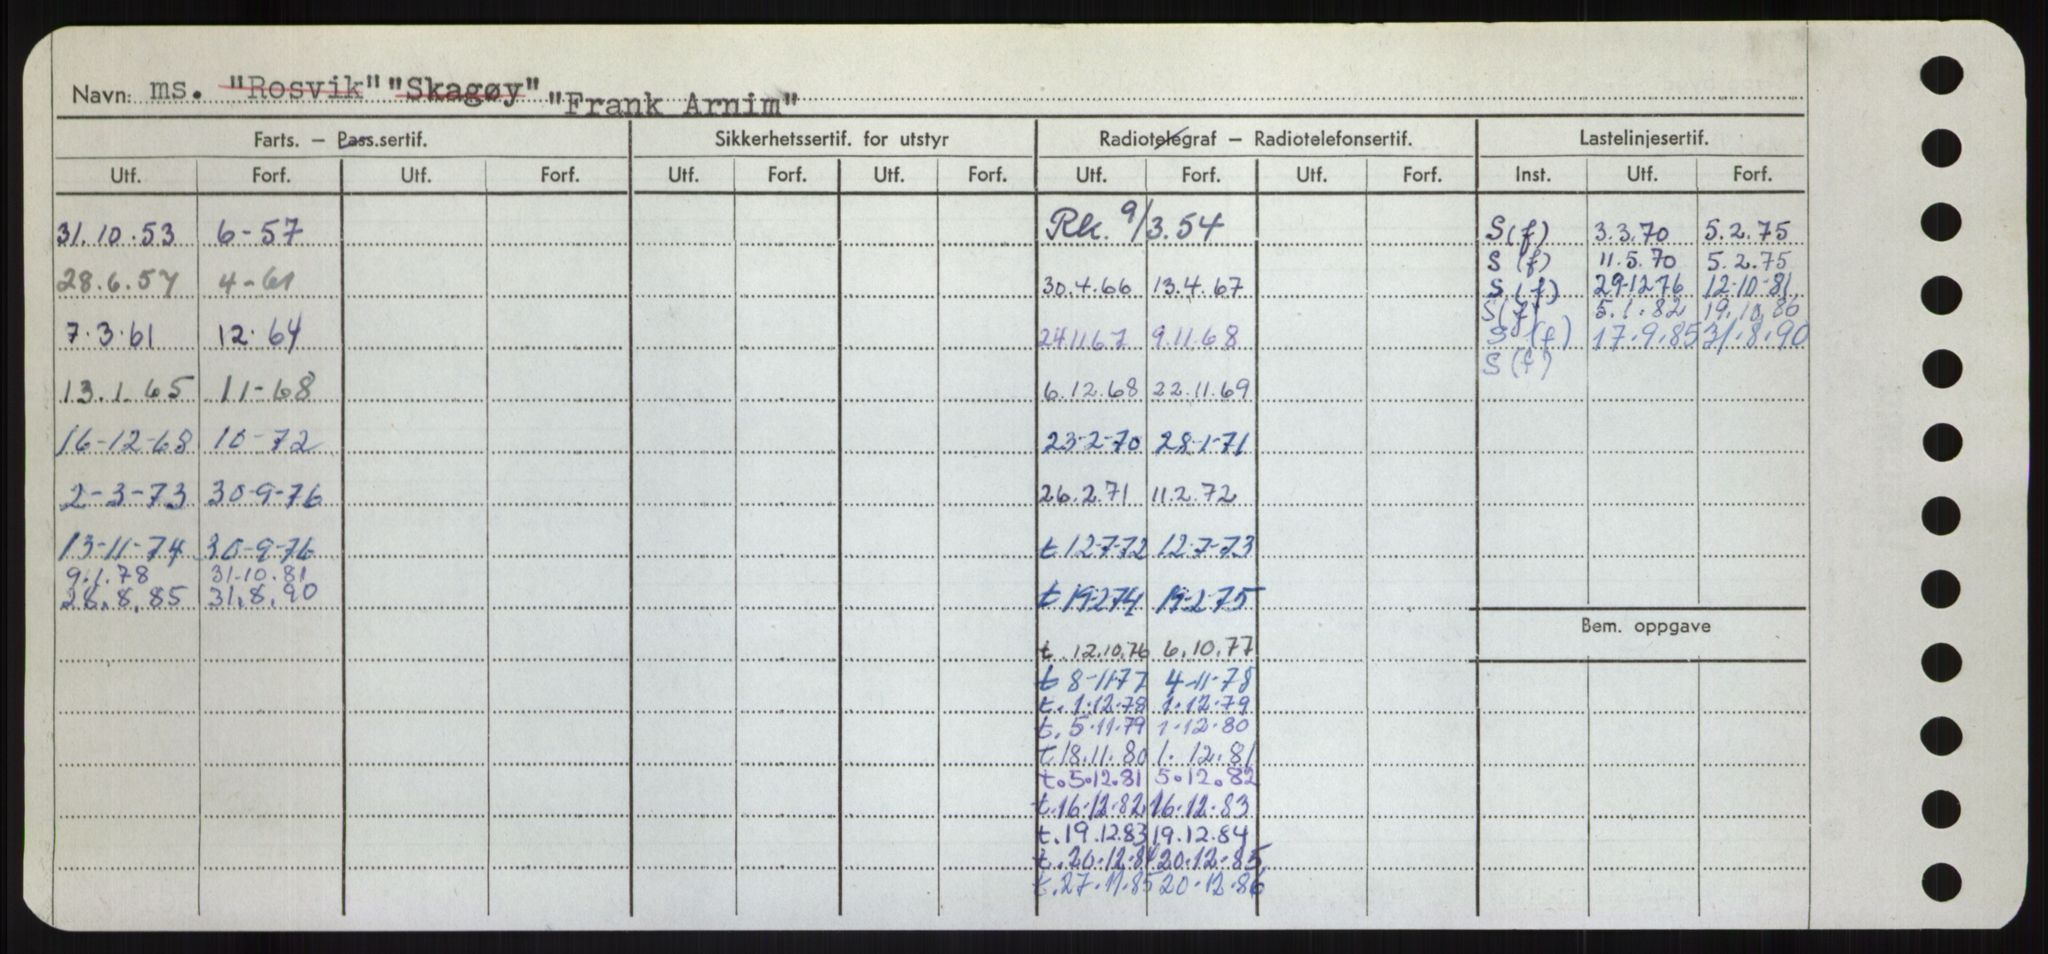 Navn: ms. "Rosvik" "Skagøy" "Frank Arnim"
Farts. — Pass.sertif. Sikkerhetssertif. for utstyr Radiotelegraf — Radiotelefonsertif. Lastelinjesertif.
Utf. Forf. Utf. Forf. Utf. Forf. Utf. Forf. Utf. Forf. Utf. Forf. Inst. Utf. Forf.
31.10.53 6-57 Rk. 9/3.54 S(f) 3.3.70 5.2.75
S(f) 11.5.70 5.2.75
28.6.57 4-61 30.4.66 13.4.67 S(f) 29-12-76 12-10-81
S(f) 5.1.82 19.10.86
7.3.61 12.64 24.11.67 9.11.68 S(f) 17.9.85 31.8.90
S(f)
13.1.65 11-68 6.12.68 22.11.69
16-12-68 10-72 23-2-70 28-1-71
2-3-73 30-9-76 26.2.71 11.2.72
13-11-74 30-9-76 t 12-7-72 12-7-73
9.1.78 31.10.81
28.8.85 31.8.90 t 19-2-74 19-2-75
Bem. oppgave
t. 12.10.76 6.10.77
t 8-11-77 4-11-78
t. 1.12.78 1.12.79
t. 5.11.79 1.12.80
t. 18.11.80 1.12.81
t. 5.12.81 5.12.82
t. 16.12.82 16.12.83
t. 19.12.83 19.12.84
t. 20.12.84 20.12.85
t. 27.11.85 20.12.86